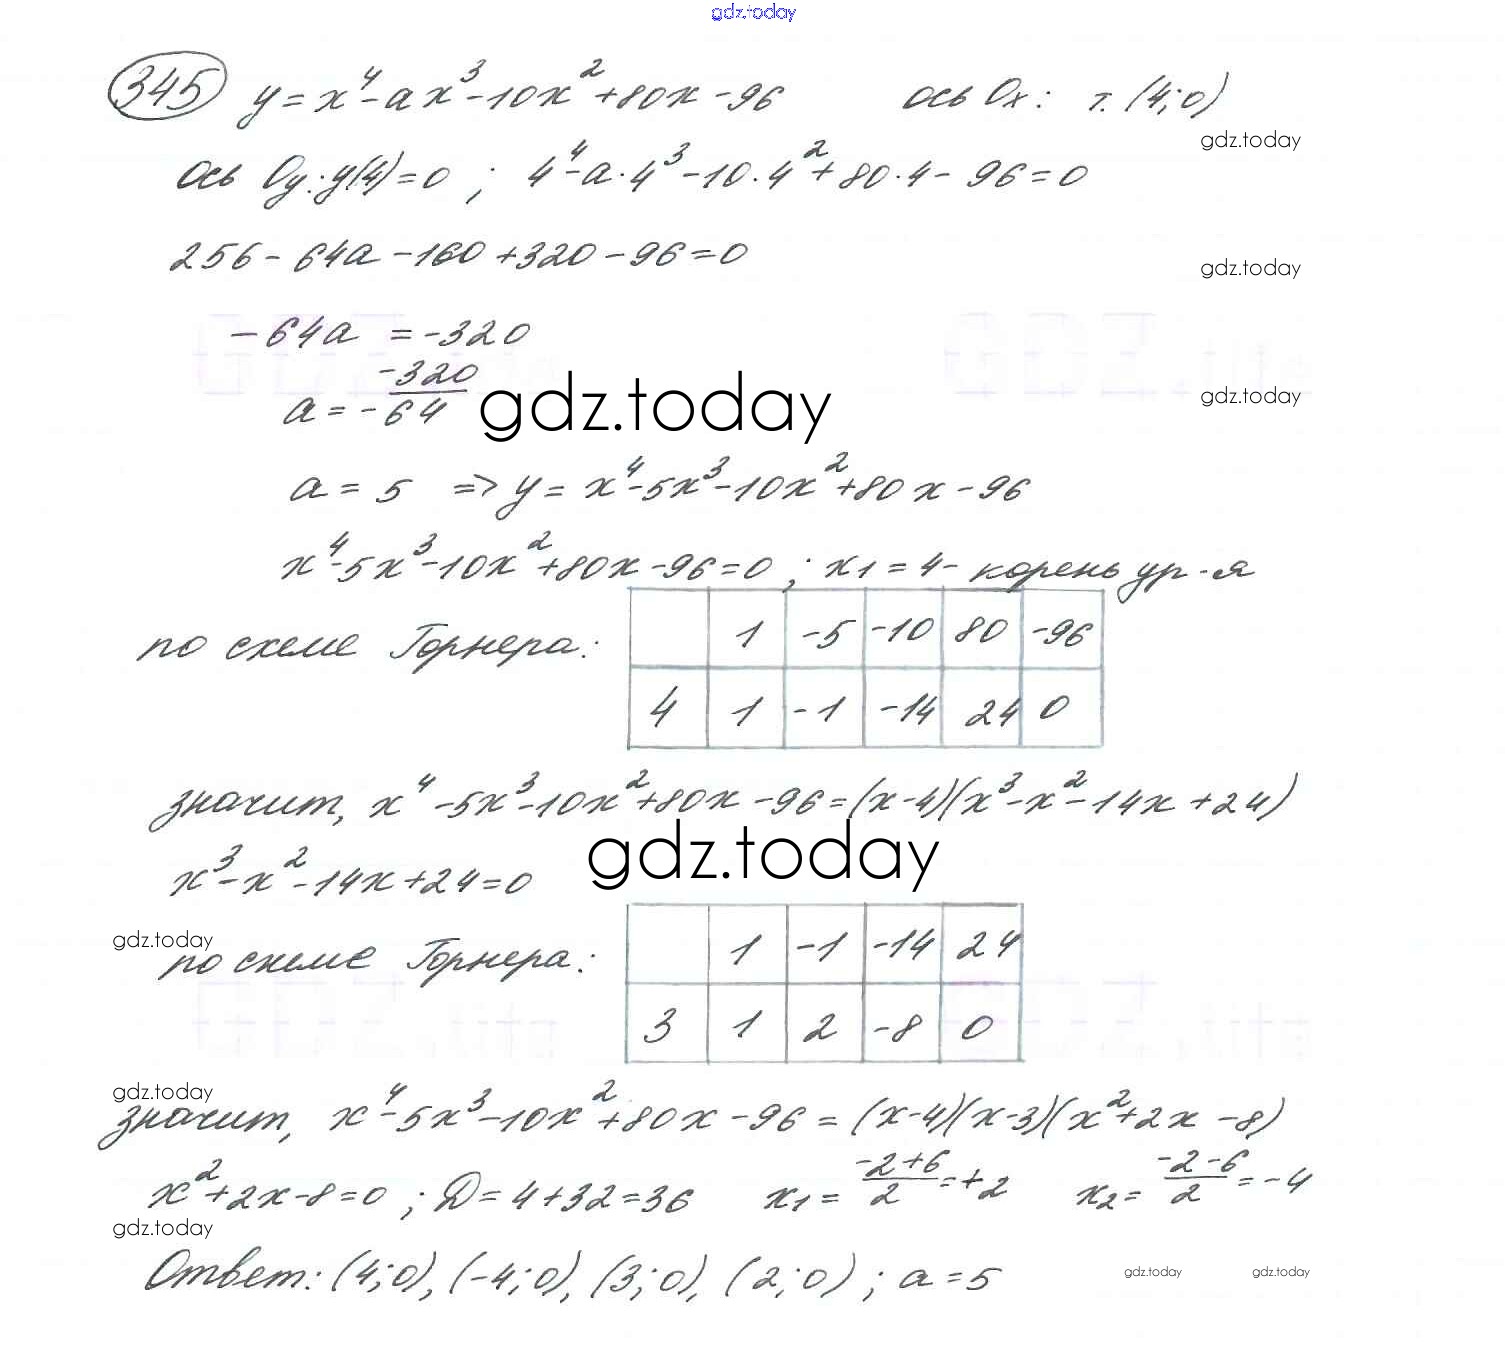 gdz.today
345 y = x⁴ - ax³ - 10x² + 80x - 96 ось Ox: т. (4; 0)
gdz.today
ось Oy: y(4) = 0 ; 4⁴ - a · 4³ - 10 · 4² + 80 · 4 - 96 = 0
256 - 64a - 160 + 320 - 96 = 0
gdz.today
- 64a = -320
a = - -320/64
gdz.today
gdz.today
a = 5 => y = x⁴ - 5x³ - 10x² + 80x - 96
x⁴ - 5x³ - 10x² + 80x - 96 = 0 ; x1 = 4 - корень ур-я
по схеме Горнера:
1 -5 -10 80 -96
4 1 -1 -14 24 0
значит, x⁴ - 5x³ - 10x² + 80x - 96 = (x - 4)(x³ - x² - 14x + 24)
gdz.today
x³ - x² - 14x + 24 = 0
gdz.today
по схеме Горнера:
1 -1 -14 24
3 1 2 -8 0
gdz.today
значит, x⁴ - 5x³ - 10x² + 80x - 96 = (x - 4)(x - 3)(x² + 2x - 8)
x² + 2x - 8 = 0 ; D = 4 + 32 = 36 x1 = -2+6/2 = +2 x2 = -2-6/2 = -4
gdz.today
Ответ: (4; 0), (-4; 0), (3; 0), (2; 0) ; a = 5
gdz.today gdz.today